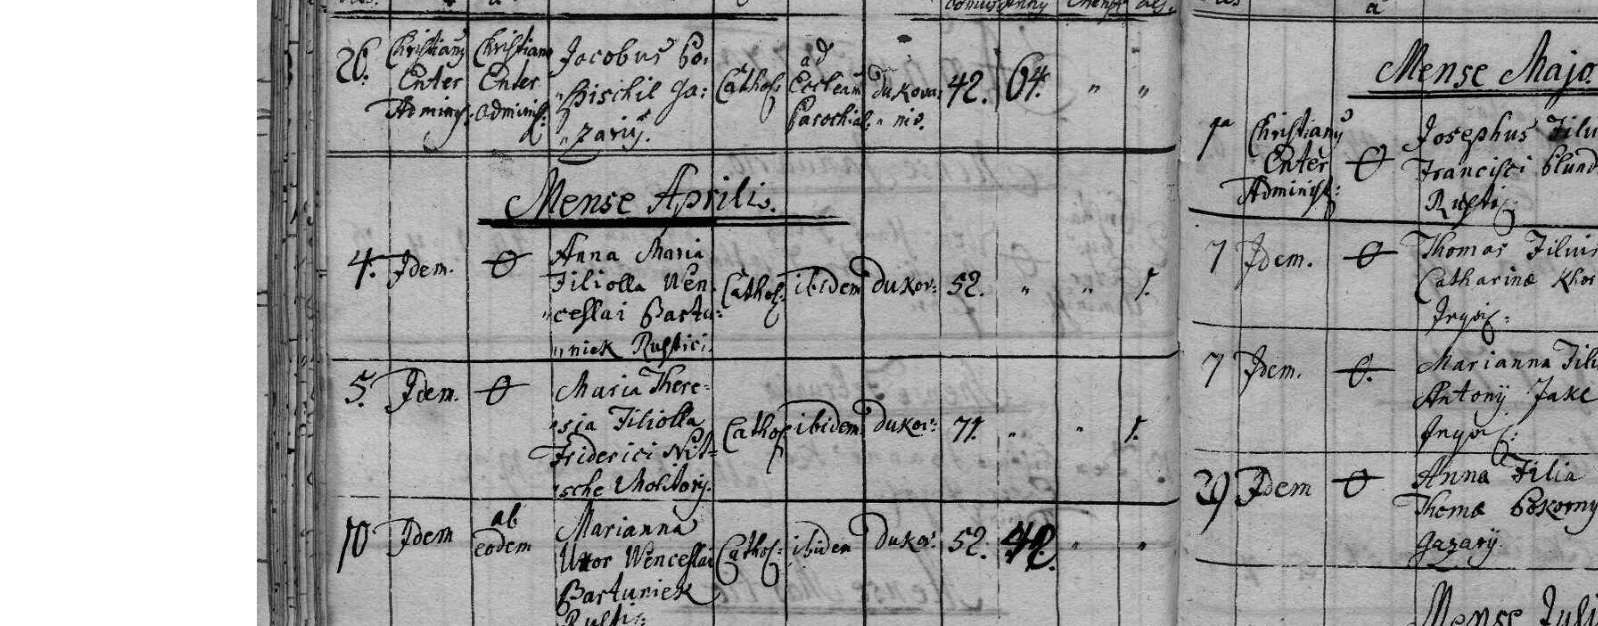 26. Christianus Enter Adminis: Christiano Enter adminis: Jacobus Po:
spischil ga:
zarij.
Cathol: ad Eccleam Parochial: dukova:
nis. 42. 64. " "
Mense Aprilis.
4. Idem. Anna Maria
Filiolla Wen
ceslai Bartu:
niek Rustici.
Cathol: ibidem dukov: 52. " " 1.
5. Idem. Maria There:
sia Filiolla
Friderici Nit:
sche Molitoris.
Cathol: ibidem dukov: 71. " " 1.
10 Idem ab
eodem Marianna
Uxor Wenceslai
Bartuniek
Rusti:
Cathol: ibidem dukov: 52. 42. " "
Mense Majo.
1a Christianus
Enter
Adminis:
Josephus Filiu
Francisci Blund
Rusti:
7 Idem. Thomas Filius
Catharinæ Khor
Inqui:
7 Idem. Marianna Fili
Antonij Jake
Inqui:
29 Idem Anna Filia
Thomæ Pokorny
gazarij
Mense Juli